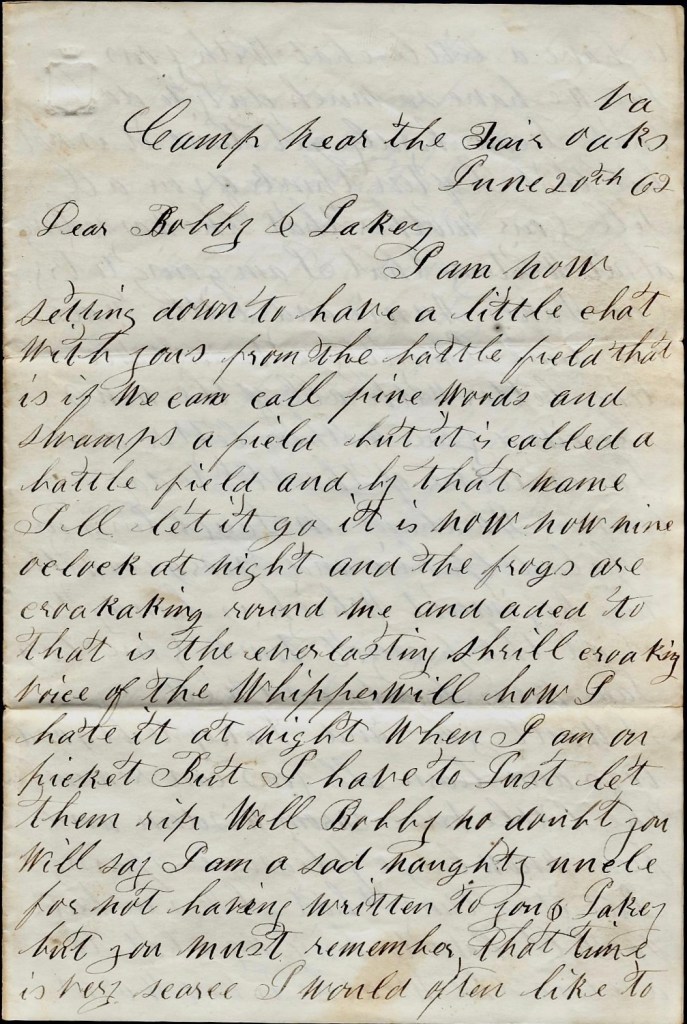 Va
Camp near the Fair oaks
June 20th 62
Dear Bobby & Jakey
I am now
setting down to have a little chat
With yous from the battle field that
is if We can call pine Woods and
swamps a field but it is called a
battle field and by that name
I ll let it go it is now now nine
oclock at night and the frogs are
croakaking round me and aded to
that is the everlasting shrill croaking
voice of the Whipperwill how I
hate it at night When I am on
picket But I have to Just let
them rip Well Bobby no doubt you
Will say I am a sad naughty uncle
for not having written to you & Jakey
but you must remember that time
is very scarce I would often like to